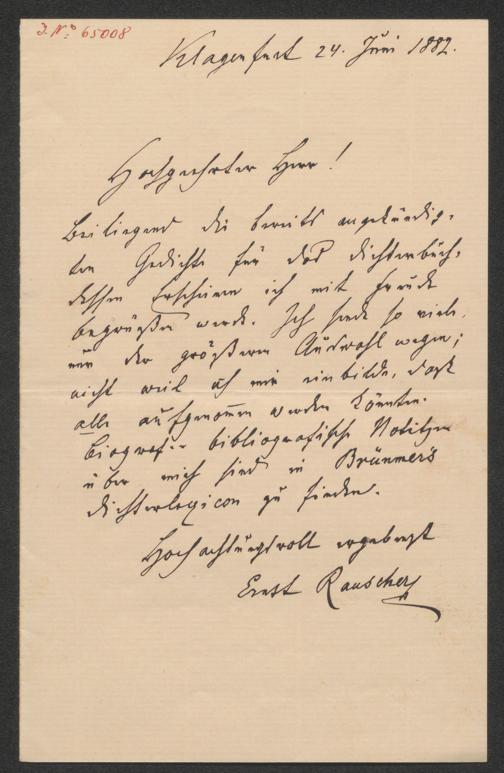 J. Nº: 65008
Klagenfurt 24. Juni 1882.
Hochgeehrter Herr!
Beiliegend die bereits angekündig-
ten Gedichte für das Dichterbuch,
dessen Erscheinen ich mit Freude
begrüßen werde. Ich sende so viele,
nur der größeren Auswahl wegen;
nicht weil ich mir einbilde, daß
alle aufgenommen werden könnten.
Biograf.- bibliografische Notitzen
über mich sind in Brümmer's
Dichterlexicon zu finden.
Hochachtungsvoll ergebenst
Ernst Rauscher